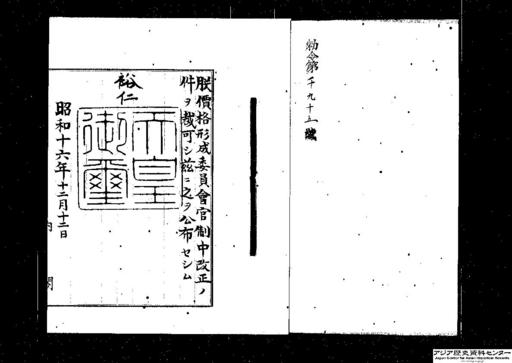 勅令第千九十五號
朕價格形成委員會官制中改正ノ
件ヲ裁可シ茲ニ之ヲ公布セシム
裕仁
天皇
御璽
昭和十六年十二月十二日
内閣
アジア歴史資料センター
Japan Center for Asian Historical Records